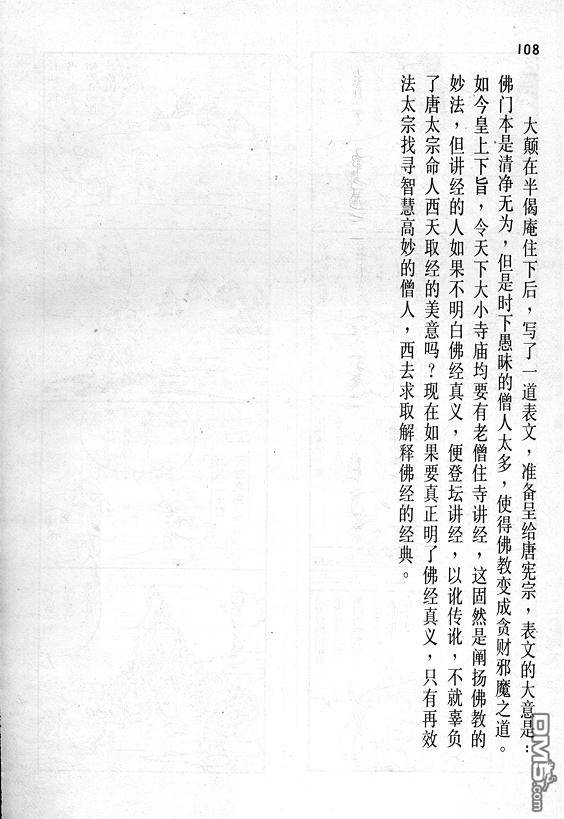 108
大颠在半偈庵住下后，写了一道表文，准备呈给唐宪宗，表文的大意是：
佛门本是清净无为，但是时下愚昧的僧人太多，使得佛教变成贪财邪魔之道。
如今皇上下旨，令天下大小寺庙均要有老僧住寺讲经，这固然是阐扬佛教的
妙法，但讲经的人如果不明白佛经真义，便登坛讲经，以讹传讹，不就辜负
了唐太宗命人西天取经的美意吗？现在如果要真正明了佛经真义，只有再效
法太宗找寻智慧高妙的僧人，西去求取解释佛经的经典。
DM5